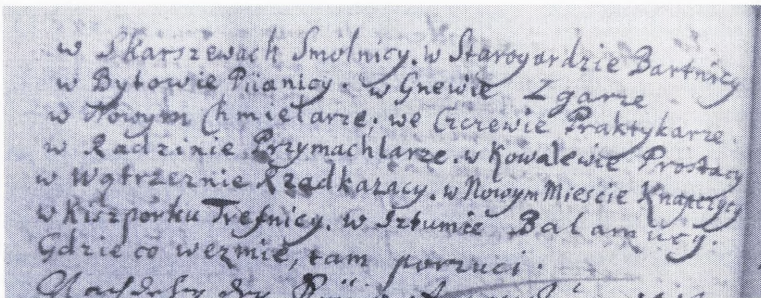 w Skarszewach Smolnicy. w Starogardzie Bartnicy
w Bytowie Piianicy. w Gnewie Zgarze
w Nowym Chmielarze; we Czczewie Praktykarze.
w Radzinie Przymachlarze. w Kowalewie Prostacy
w Wąbrzeznie Rzadkazacy. w Nowym Miescie Knapczycy
w Kiszporku Trefnicy. w Sztumie Balamucy.
Gdzie co wezmie, tam porzuci.